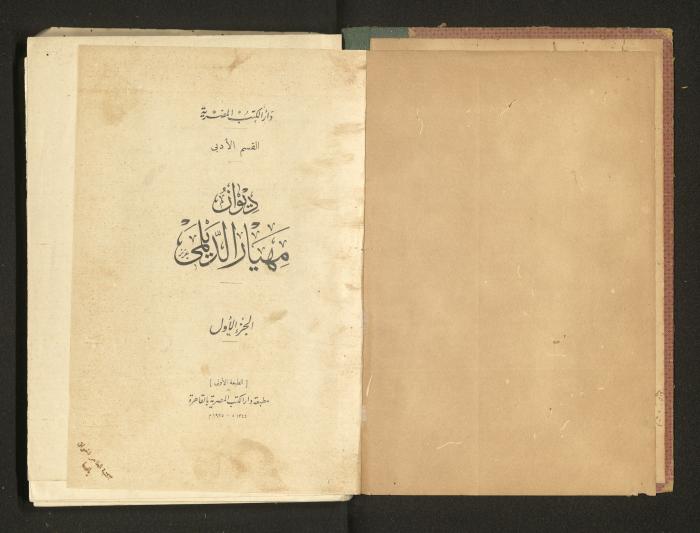 دار الكتب المصرية
القسم الأدبى
ديوان
مهيار الديلمى
الجزء الأول
[ الطبعة الأولى ]
مطبعة دار الكتب المصرية بالقاهرة
١٣٤٤ ه - ١٩٢٥ م